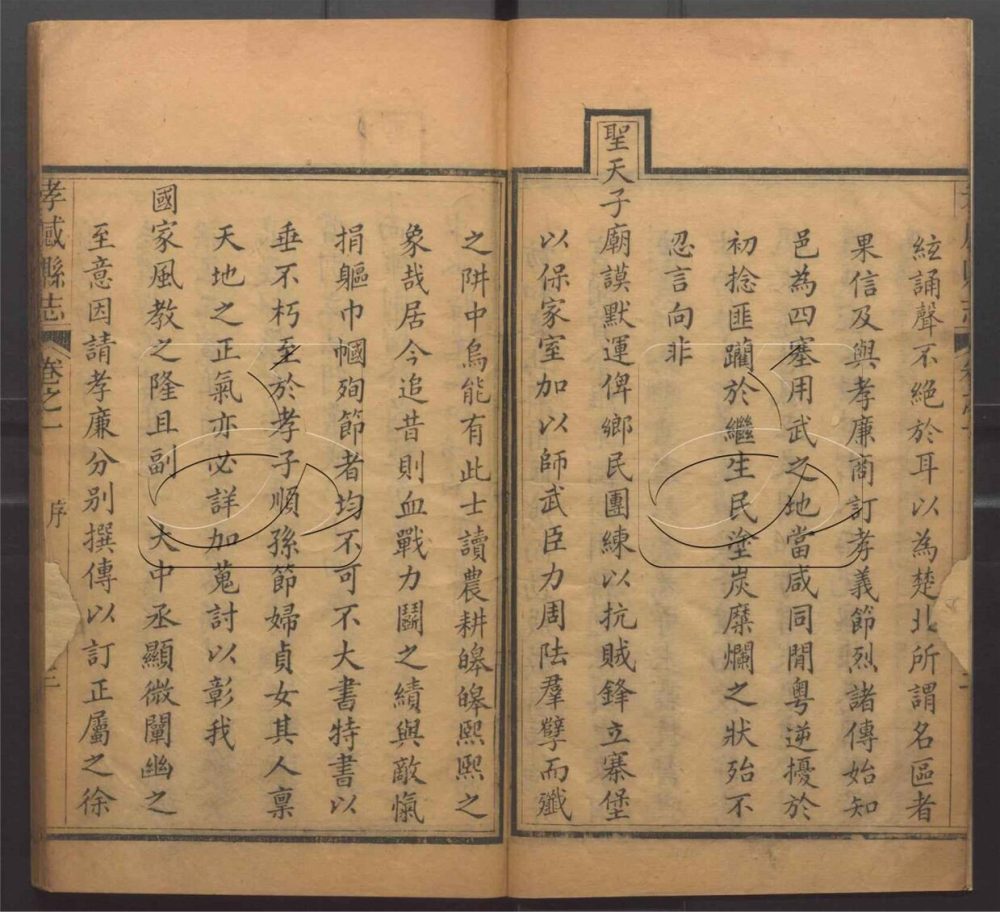 絃誦聲不絕於耳以為楚北所謂名區者
果信及與孝廉商訂孝義節烈諸傳始知
邑為四塞用武之地當咸同閒粵逆擾於
初捻匪躪於繼生民塗炭糜爛之狀殆不
忍言向非
聖天子廟謨默運俾鄉民團練以抗賊鋒立寨堡
以保家室加以師武臣力周阹羣孽而殲
之阱中烏能有此士讀農耕皞皞熙熙之
象哉居今追昔則血戰力鬭之績與敵愾
捐軀巾幗殉節者均不可不大書特書以
垂不朽至於孝子順孫節婦貞女其人稟
天地之正氣亦必詳加蒐討以彰我
國家風教之隆且副 大中丞顯微闡幽之
至意因請孝廉分別撰傳以訂正屬之徐
孝感縣志 卷之一 序